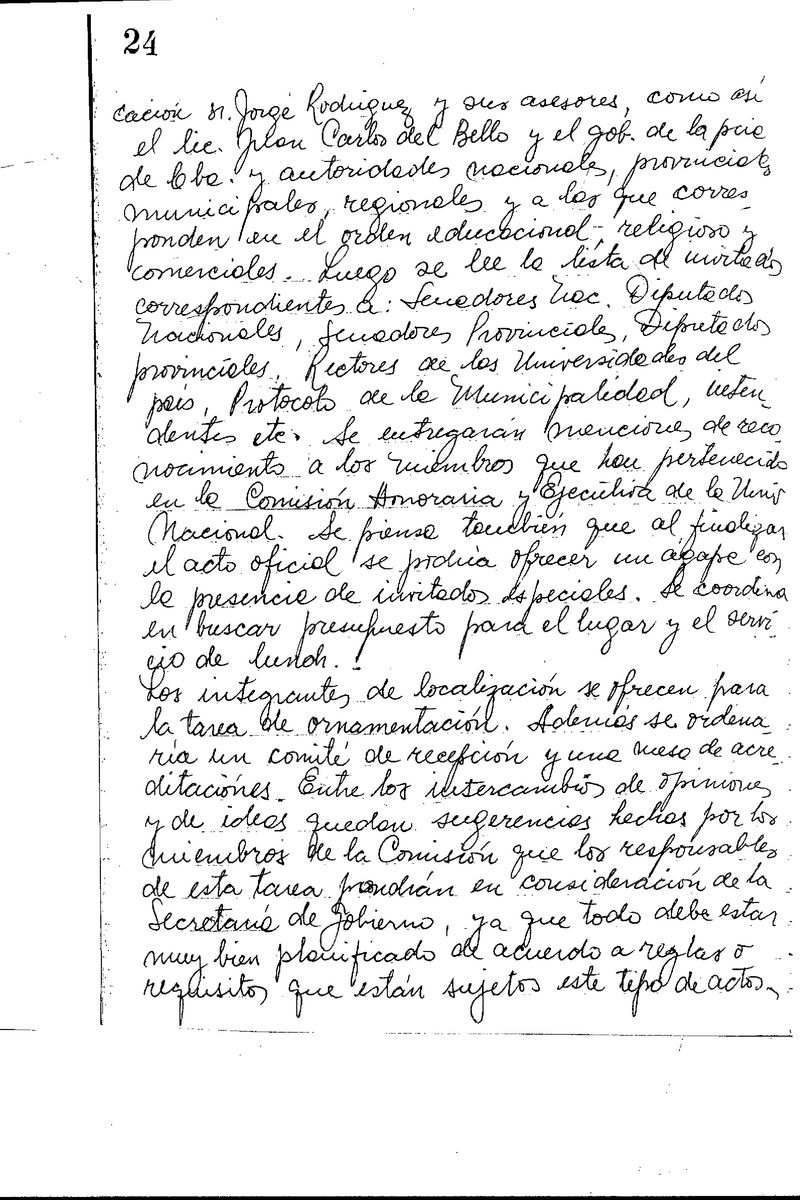 24
cación sr. Jorge Rodriguez y sus asesores, como así
el lic. Juan Carlos del Bello y el gob. de la pcia
de Cba. y autoridades nacionales, provinciales
municipales, regionales y a las que corres-
ponden en el orden educacional, religioso y
comerciales. Luego se lee la lista de invitados
correspondientes a: Senadores Nac. Diputados
Nacionales, Senadores Provinciales, Diputados
provinciales, Rectores de las Universidades del
país, Protocolo de la Municipalidad, inten-
dentes etc. Se entregarán menciones de reco-
nocimiento a los miembros que han pertenecido
en la Comisión Honoraria y Ejecutiva de la Univ
Nacional. Se piensa también que al finalizar
el acto oficial se podría ofrecer un agape con
la presencia de invitados especiales. Se coordina
en buscar presupuesto para el lugar y el servi-
cio de lunch.
Los integrantes de localización se ofrecen para
la tarea de ornamentación. Además se ordena-
ría un comité de recepción y una mesa de acre-
ditaciones. Entre los intercambios de opiniones
y de ideas quedan sugerencias hechas por los
miembros de la Comisión que los responsables
de esta tarea pondrán en consideración de la
Secretaría de Gobierno, ya que todo debe estar
muy bien planificado de acuerdo a reglas o
requisitos que están sujetos este tipo de actos.